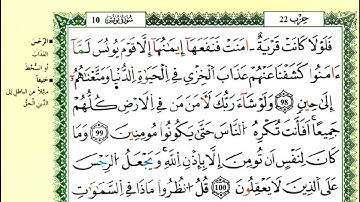 حِزْب 22
سُورَةُ يُونُسَ 10
فَلَوْلَا كَانَتْ قَرْيَةٌ ءَامَنَتْ فَنَفَعَهَا إِيمَٰنُهَا إِلَّا قَوْمَ يُونُسَ لَمَّا
ءَامَنُوا كَشَفْنَا عَنْهُمْ عَذَابَ الْخِزْيِ فِي الْحَيَوٰةِ الدُّنْيَا وَمَتَّعْنَٰهُمْ
إِلَىٰ حِينٍ 98 وَلَوْ شَاءَ رَبُّكَ لَأٓمَنَ مَن فِي الْأَرْضِ كُلُّهُمْ
جَمِيعًا أَفَأَنتَ تُكْرِهُ النَّاسَ حَتَّىٰ يَكُونُوا مُومِنِينَ 99 وَمَا
كَانَ لِنَفْسٍ أَن تُومِنَ إِلَّا بِإِذْنِ اللَّهِ وَيَجْعَلُ الرِّجْسَ
عَلَى الَّذِينَ لَا يَعْقِلُونَ 100 قُلُ انظُرُوا مَاذَا فِي السَّمَٰوَٰتِ
الرِّجْسَ
العَذَابَ
أَوِ السُّخْطَ
حَنِيفًا
مَائِلًا عَنِ البَاطِلِ إِلَى
الدِّينِ الحَقِّ